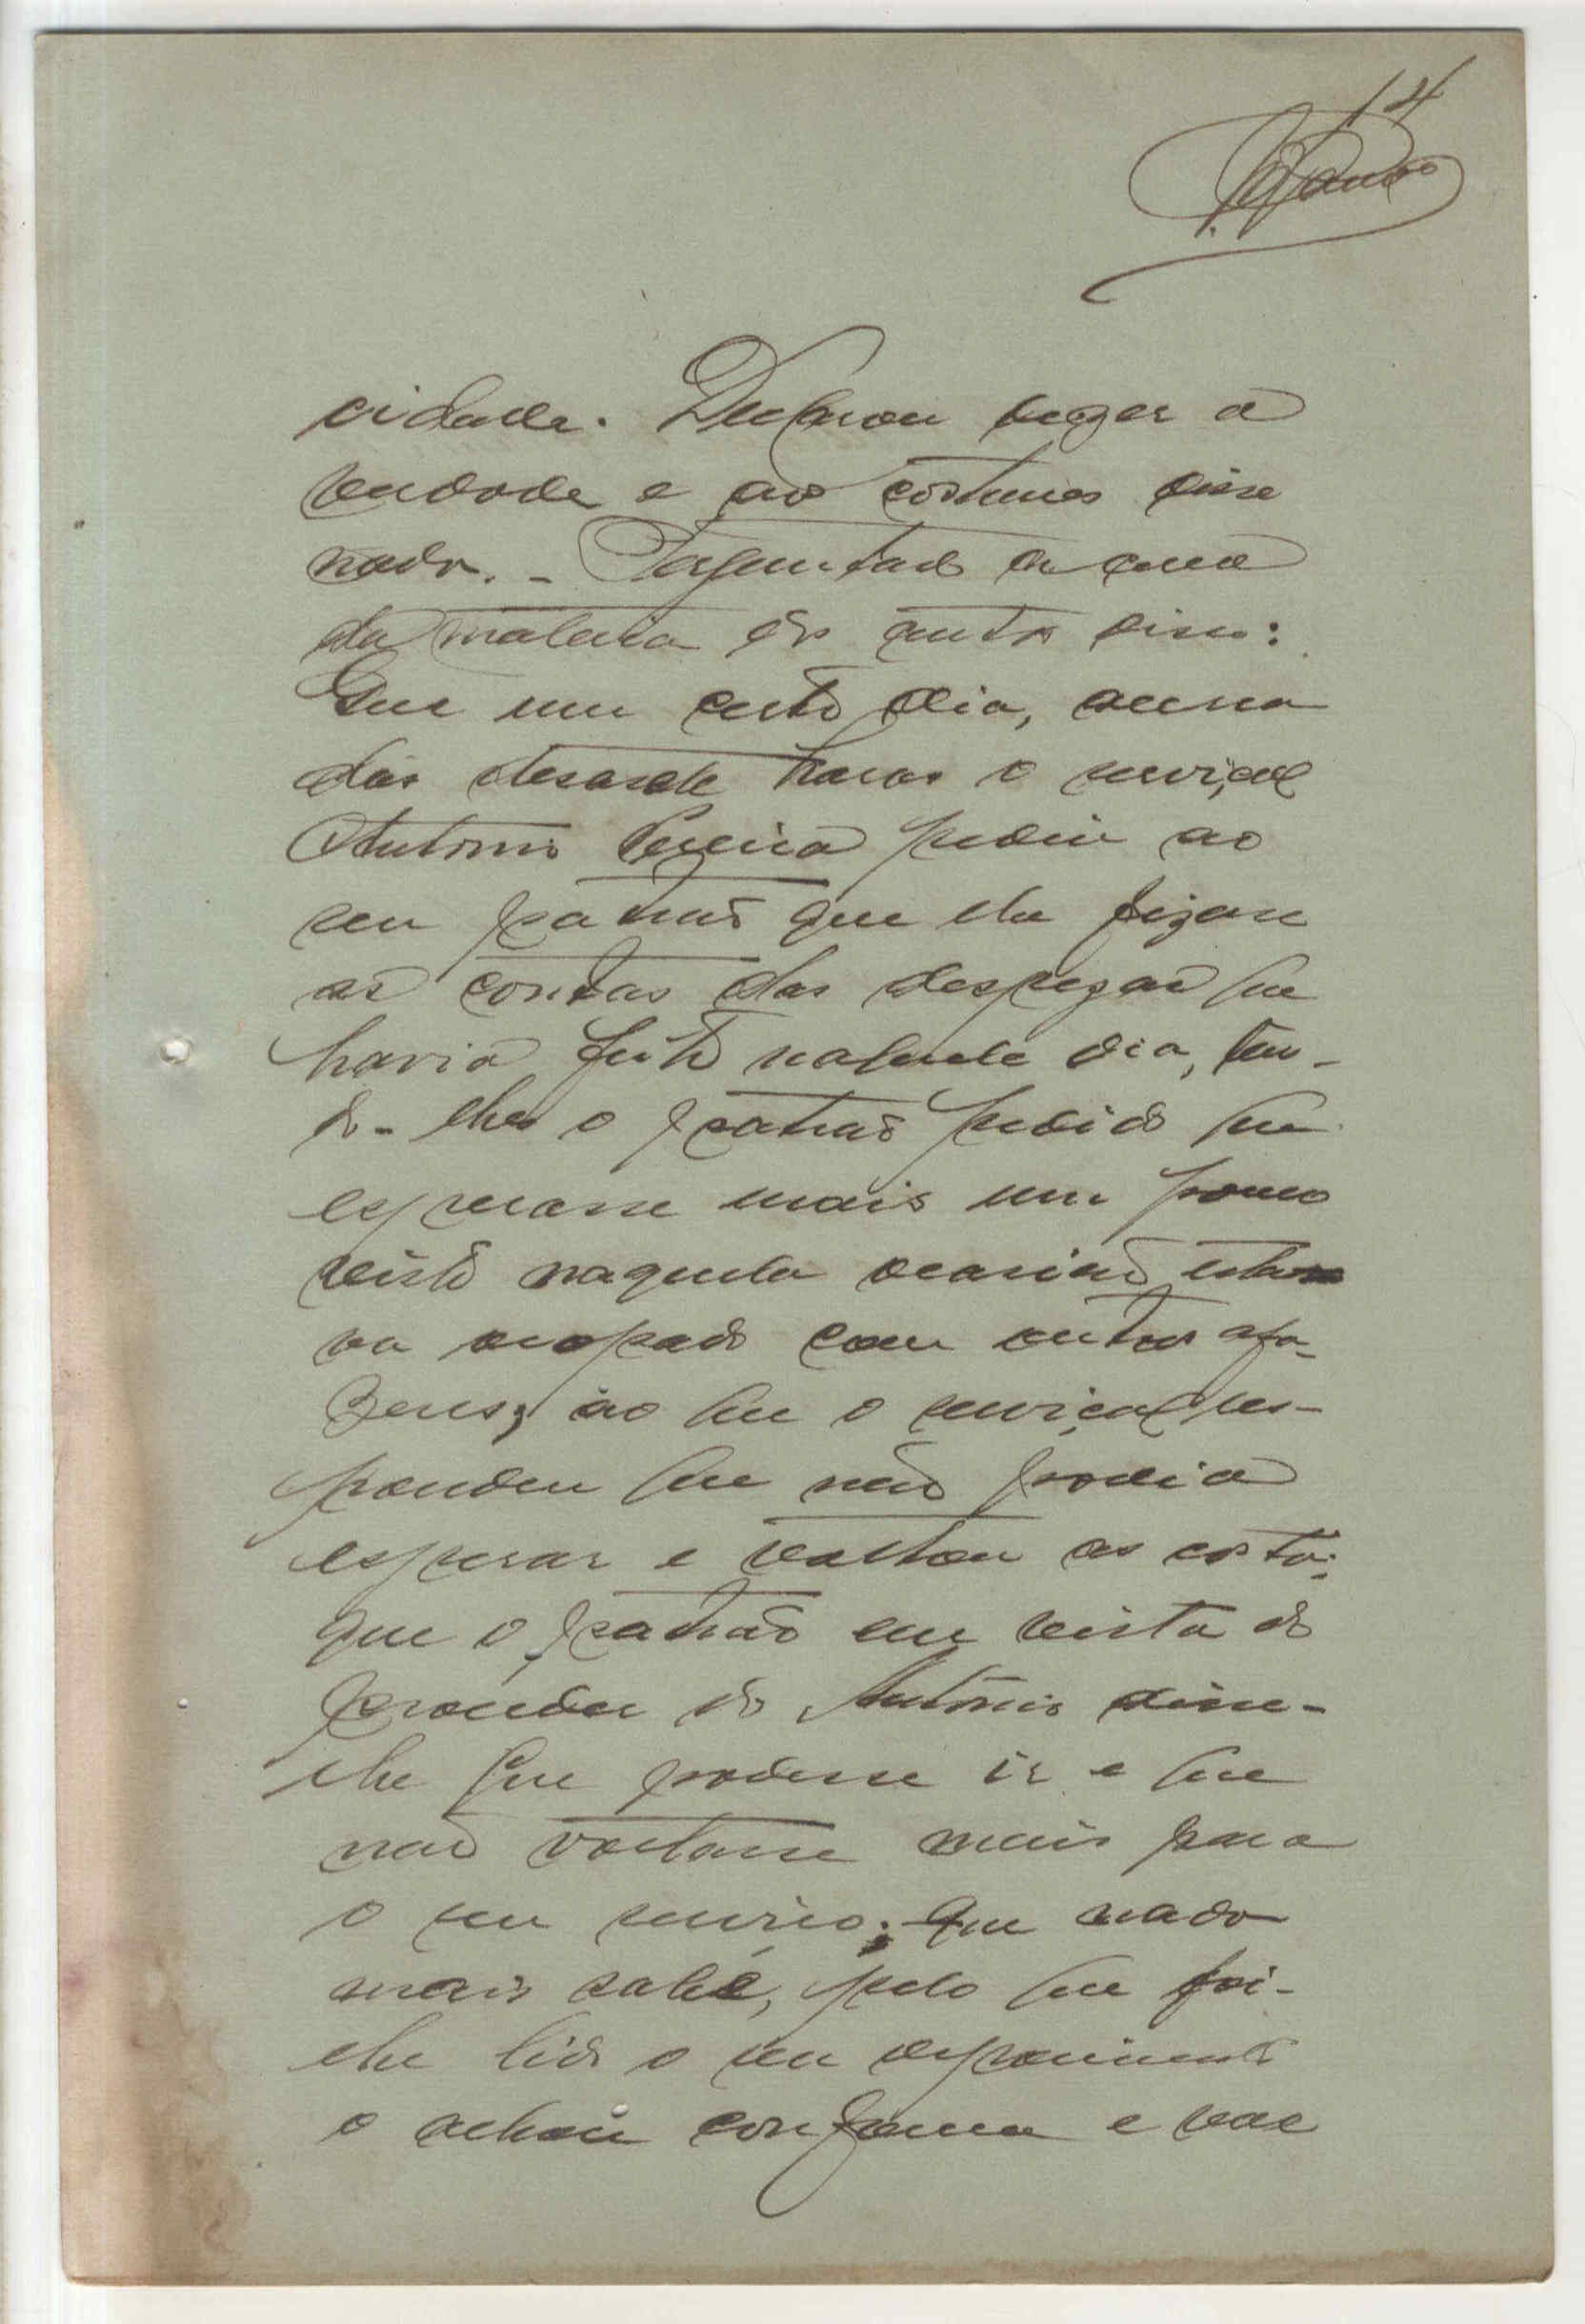 14
cidade. Declarou dizer a
verdade e aos costumes disse
nada. - Perguntado a cerca
da materia dos autos disse:
Que um certo dia, acerca
das desasete horas o serviçal
Antonio Pereira pediu ao
seu patrão que lhe fizesse
as contas das despezas que
havia feito naquele dia, ten-
do-lhes o patrão pedido que
esperasse mais um pouco
visto naquela ocasião esta
va ocupado com outros afa-
zeres; ao que o serviçal res-
pondeu que não podia
esperar e voltou as costas;
que o patrão em vista do
proceder do Antonio disse-
lhe que podesse ir e que
não voltasse mais para
o seu serviço; que nada
mais sabe, pelo que foi-
lhe lido o seu depoimento
o achou conforme e vae